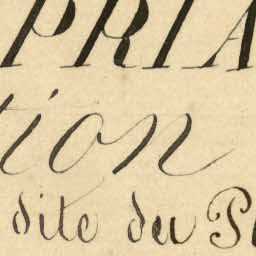 PRIA
tion
dite du Pl